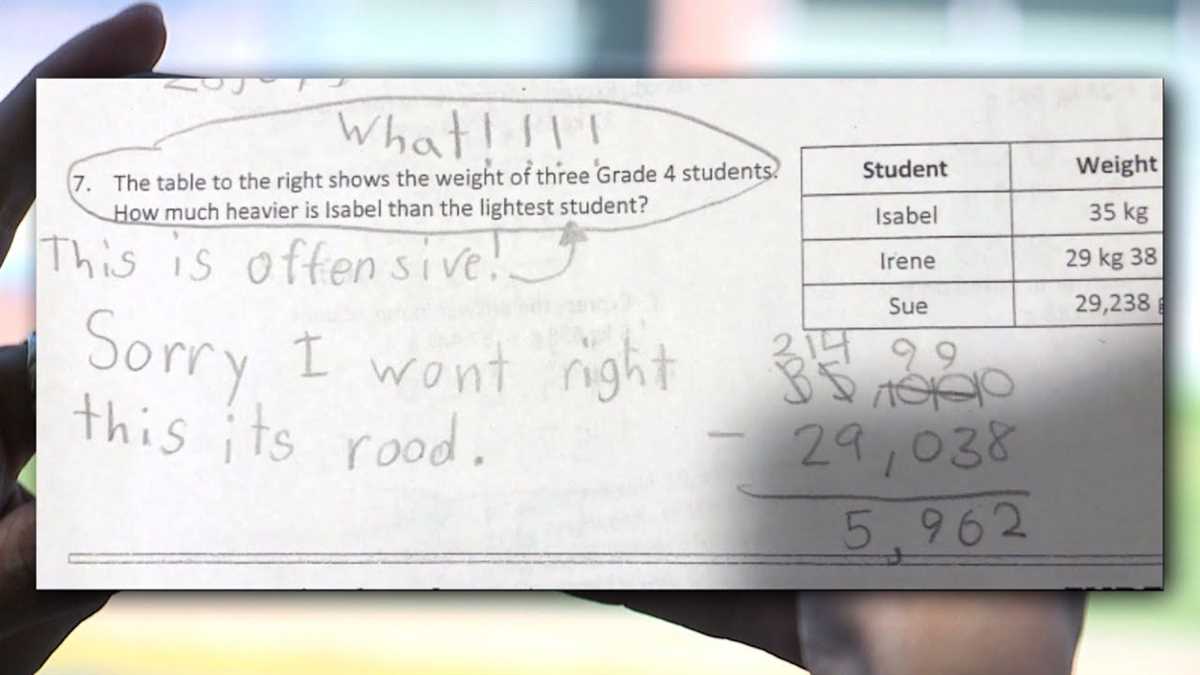 What!!!!!
7. The table to the right shows the weight of three Grade 4 students.
How much heavier is Isabel than the lightest student?
This is offensive!
Sorry I wont right
this its rood.
Student Weight
Isabel 35 kg
Irene 29 kg 38
Sue 29,238 g
3 14 9 9
35 10 10 10
- 29,038
5,962